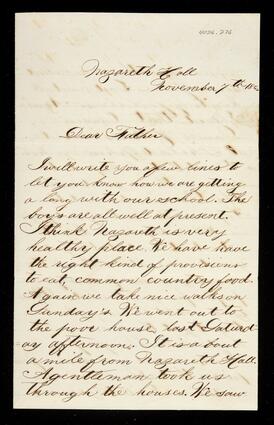 4026.276
Nazareth Hall
November 7th 186
Dear Father
I will write you a few lines to
let you know how we are getting
a long with our school. The
boys are all well at present.
I think Nazareth is very
healthy place. We have have
the right kind of provisions
to eat, common country food.
Again we take nice walks on
Sunday's. We went out to
the poor house last Saturd
ay afternoon. It is a bout
a mile from Nazareth Hall.
A gentleman took us
through the houses. We saw